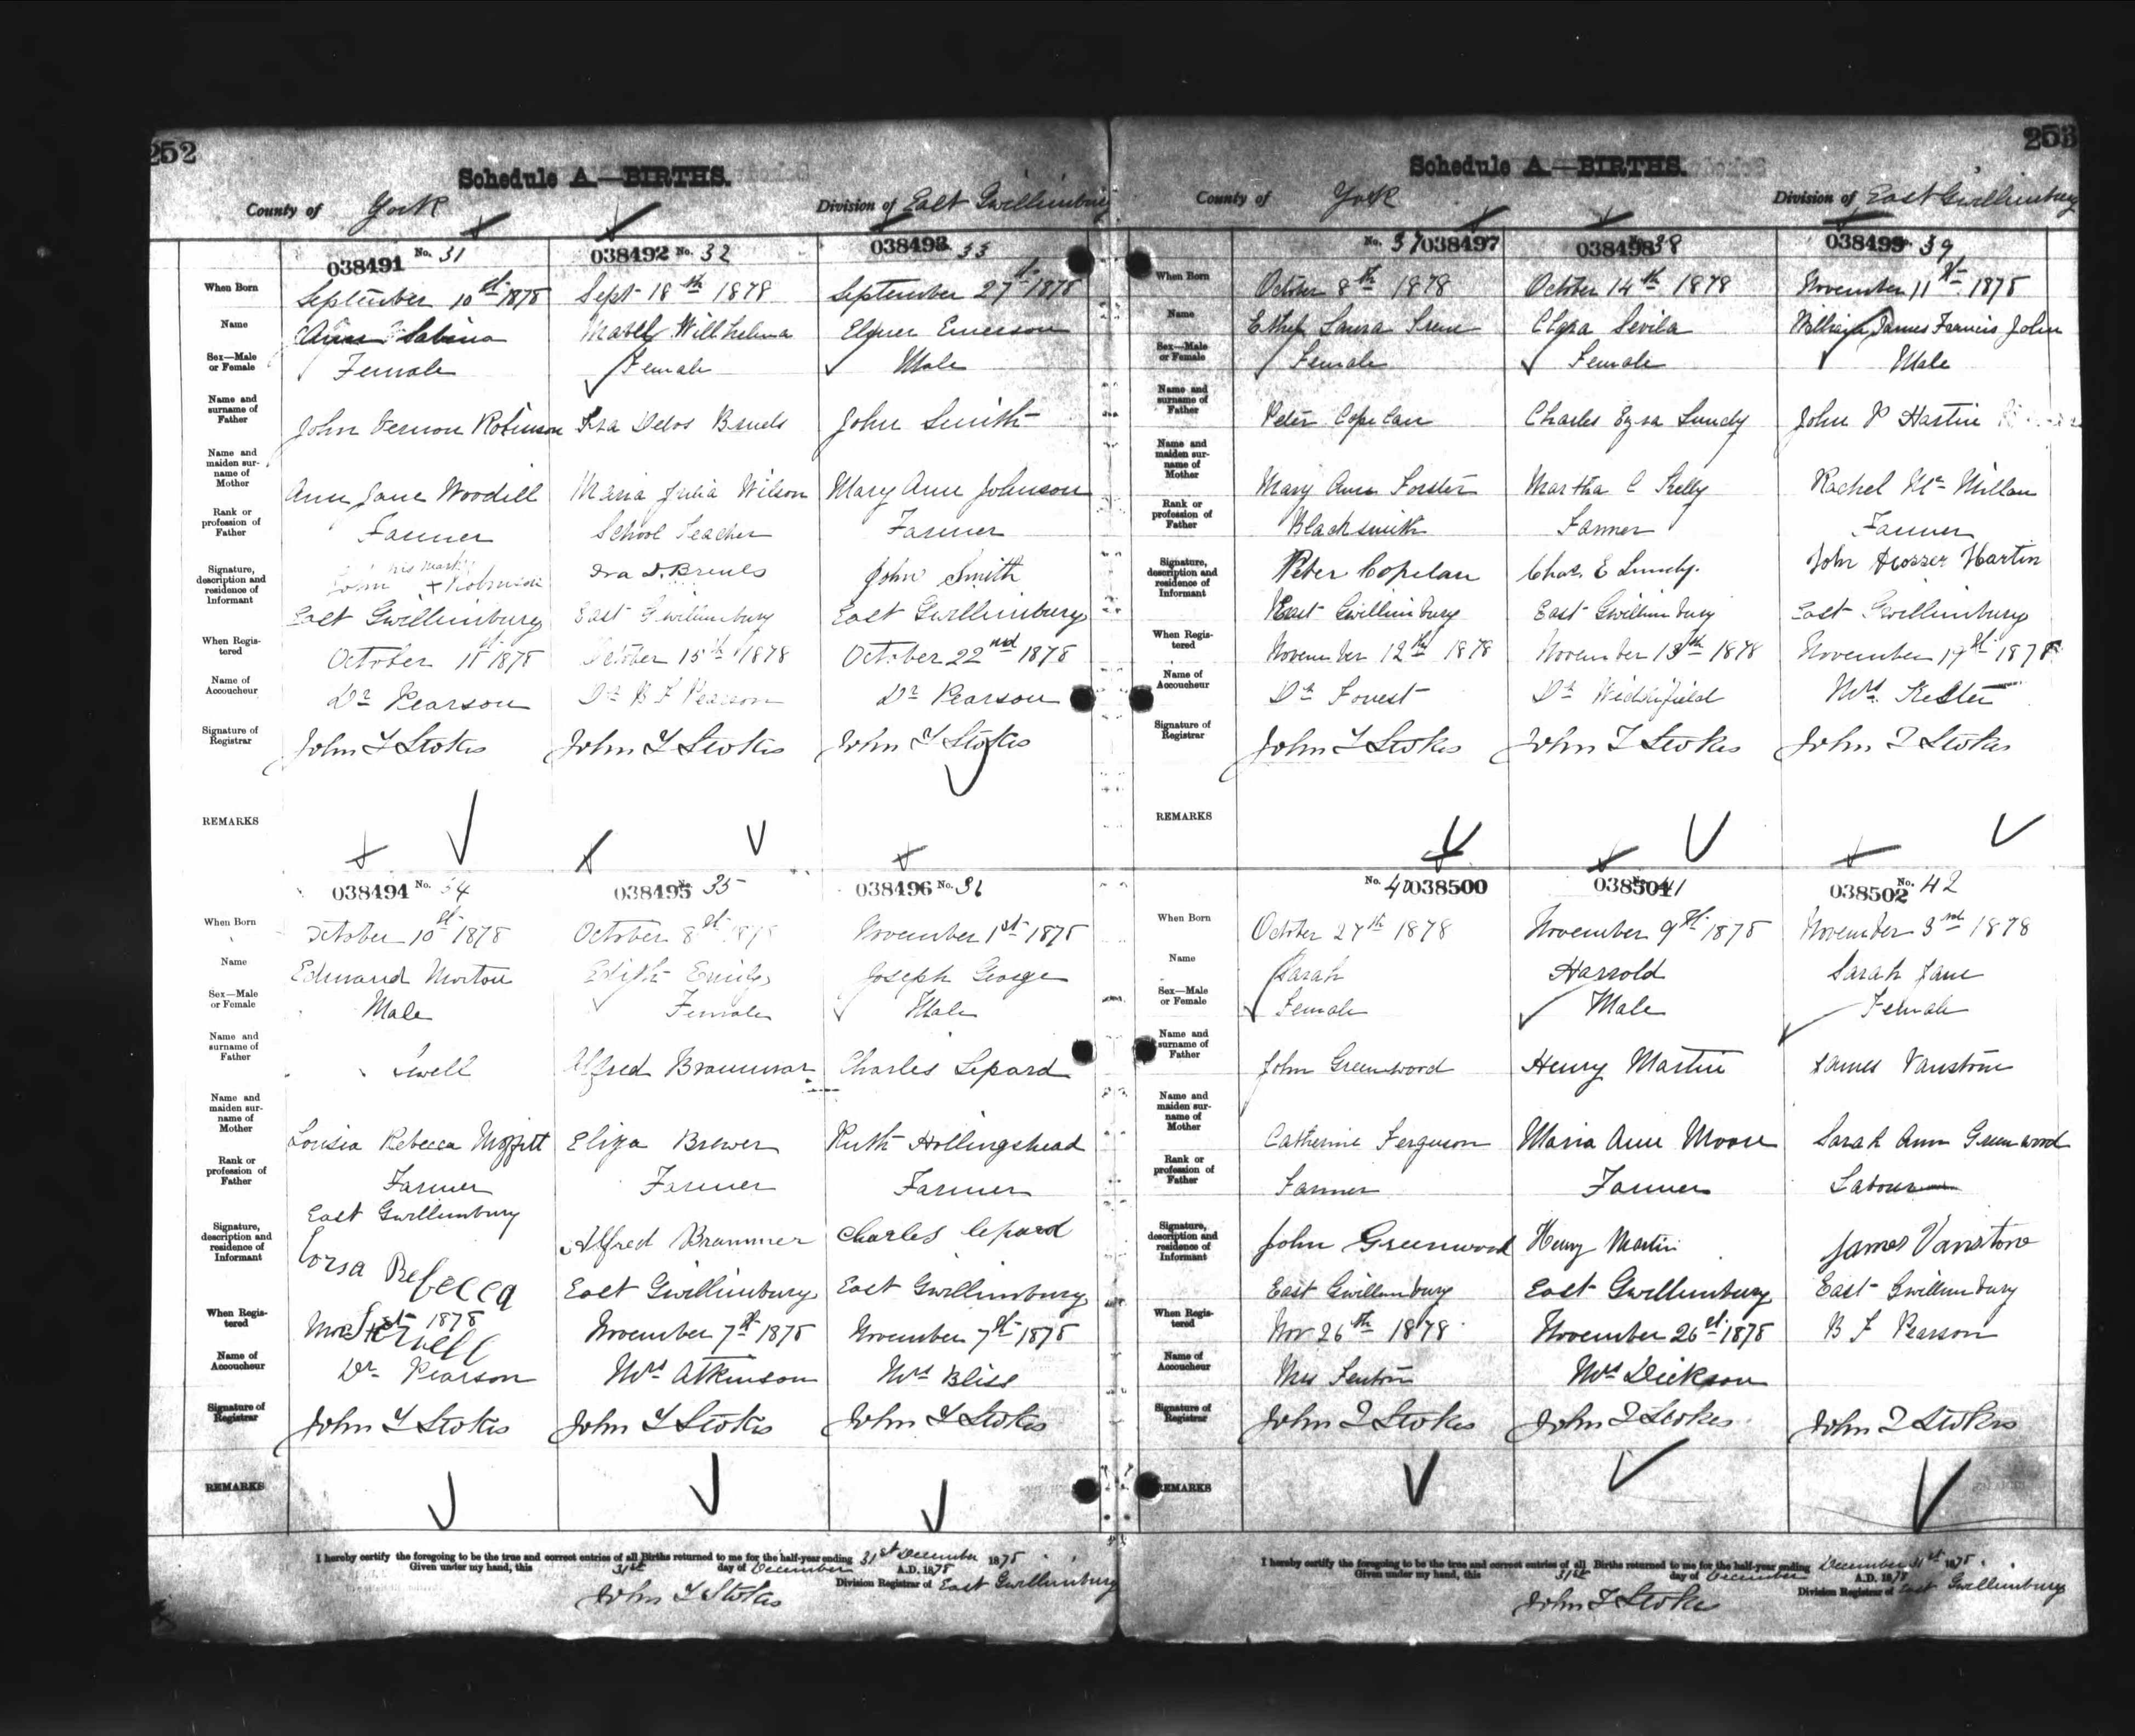 252
Schedule A.—BIRTHS.
County of York Division of East Gwillimbury
038491 No. 31 038492 No. 32 038493 33
When Born September 10th 1878 Sept 18th 1878 September 27th 1878
Name Sabina Mabel Willhelma Elmer Emerson
Sex—Male or Female Female Female Male
Name and surname of Father John Vernon Robinson Ira Delos Bruels John Smith
Name and maiden surname of Mother Ann Jane Woodill Maria Julia Wilson Mary Ann Johnson
Rank or profession of Father Farmer School Teacher Farmer
his mark
Signature, description and residence of Informant John + Robinson Ira D. Bruels John Smith
East Gwillimbury East Gwillimbury East Gwillimbury
When Registered October 1878 October 15th 1878 October 22nd 1878
Name of Accoucheur Dr Pearson Dr B F Pearson Dr Pearson
Signature of Registrar John T Stokes John T Stokes John T Stokes
REMARKS
038494 No. 34 038495 35 038496 No. 36
When Born October 10th 1878 October 8th 1878 November 1st 1878
Name Edmund Morton Edith Emily Joseph George
Sex—Male or Female Male Female Male
Name and surname of Father Sewell Alfred Brammar Charles Lepard
Name and maiden surname of Mother Louisia Rebecca Moffitt Eliza Brewer Ruth Hollingshead
Rank or profession of Father Farmer Farmer Farmer
East Gwillimbury
Signature, description and residence of Informant Lorsa Rebecca Alfred Brammer Charles lepard
East Gwillimbury East Gwillimbury
When Registered 1878 November 7th 1878 November 7th 1878
Name of Accoucheur Dr Pearson Mrs Atkinson Mrs Bliss
Signature of Registrar John T Stokes John T Stokes John T Stokes
REMARKS
I hereby certify the foregoing to be the true and correct entries of all Births returned to me for the half-year ending 31st December 1878
Given under my hand, this 31st day of December A.D. 1878
John T Stokes Division Registrar of East Gwillimbury
253
Schedule A.—BIRTHS.
County of York Division of East Gwillimbury
No. 37 038497 038498 38 038499 39
When Born October 8th 1878 October 14th 1878 November 11th 1878
Name Ethel Laura Irene Clara Sevila William James Francis John
Sex—Male or Female Female Female Male
Name and surname of Father Peter Copelan Charles Ezra Lundy John P Hartin
Name and maiden surname of Mother Mary Ann Forster Martha C Kelly Rachel Mc Millan
Rank or profession of Father Blacksmith Farmer Farmer
Signature, description and residence of Informant Peter Copelan Chas. E Lundy. John Hartin
East Gwillimbury East Gwillimbury East Gwillimbury
When Registered November 12th 1878 November 13th 1878 November 19th 1878
Name of Accoucheur Dr Forrest Dr Widdifield Mrs. Kester
Signature of Registrar John T Stokes John T Stokes John T Stokes
REMARKS
No. 40 038500 038501 41 038502 No. 42
When Born October 27th 1878 November 9th 1878 November 3rd 1878
Name Sarah Harrold Sarah Jane
Sex—Male or Female Female Male Female
Name and surname of Father John Greenwood Henry Martin James Vanstone
Name and maiden surname of Mother Catherine Ferguson Maria Ann Moore Sarah Ann Greenwood
Rank or profession of Father Farmer Farmer Labourer
Signature, description and residence of Informant John Greenwood Henry Martin James Vanstone
East Gwillimbury East Gwillimbury East Gwillimbury
When Registered Nov 26th 1878 November 26th 1878 B F Pearson
Name of Accoucheur Mrs Fenton Mrs Dickson
Signature of Registrar John T Stokes John T Stokes John T Stokes
REMARKS
I hereby certify the foregoing to be the true and correct entries of all Births returned to me for the half-year ending December 31st 1878
Given under my hand, this 31st day of December A.D. 1878
John T Stokes Division Registrar of East Gwillimbury